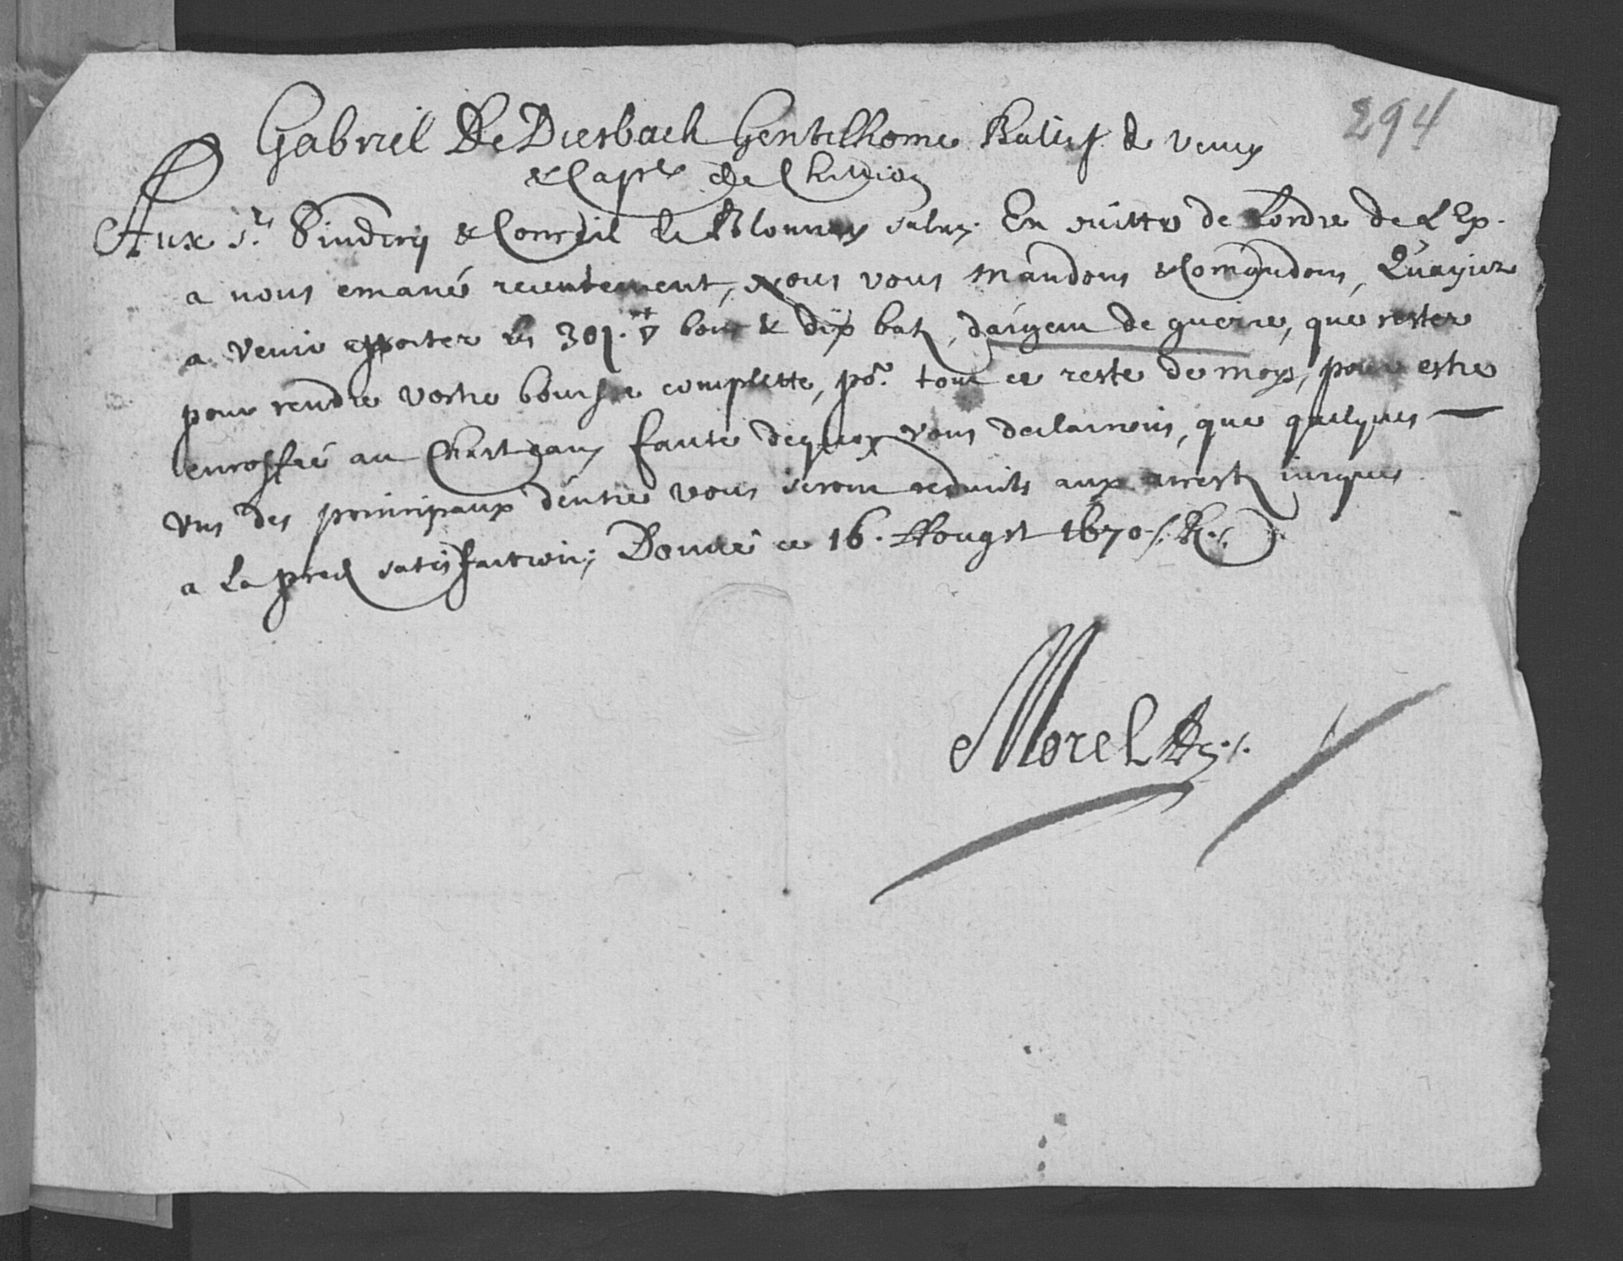 294
Gabriel De Diesbach Gentilhome Balif de Vevey
& Capne de Chillion
Aux Srs Sindicq & Conseil de Blonnay salut. En suitte de Lordre de L Ex.
a nous emané recentement, Nous vous mandons & Comandons, Quayiez
a venir apporter les 301. bons & dix batz, dargent de guerre, que restez
pour rendre vostre bourse complette, po.r tout ce reste de mois, pour estre
encoffré au Chasteau, faute dequoy vous declairons, que quelques
uns des principaux dentre vous seront reduits aux arrest jusques
a la pred satisfaction; Donné ce 16. Aougst 1670
Morel